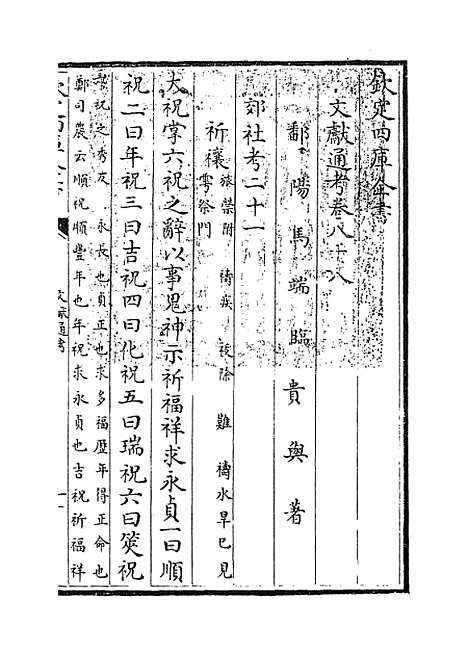 欽定四庫全書
文獻通考卷八十八
鄱陽馬端臨貴與著
郊社考二十一
祈禳
旅禜附 禱疾 祓除 難 禱水旱已見
雩祭門
大祝掌六祝之辭以事鬼神示祈福祥求永貞一曰順
祝二曰年祝三曰吉祝四曰化祝五曰瑞祝六曰筴祝
永長也貞正也求多福歴年得正命也
鄭司農云順祝順豐年也年祝求永貞也吉祝祈福祥
文獻通考